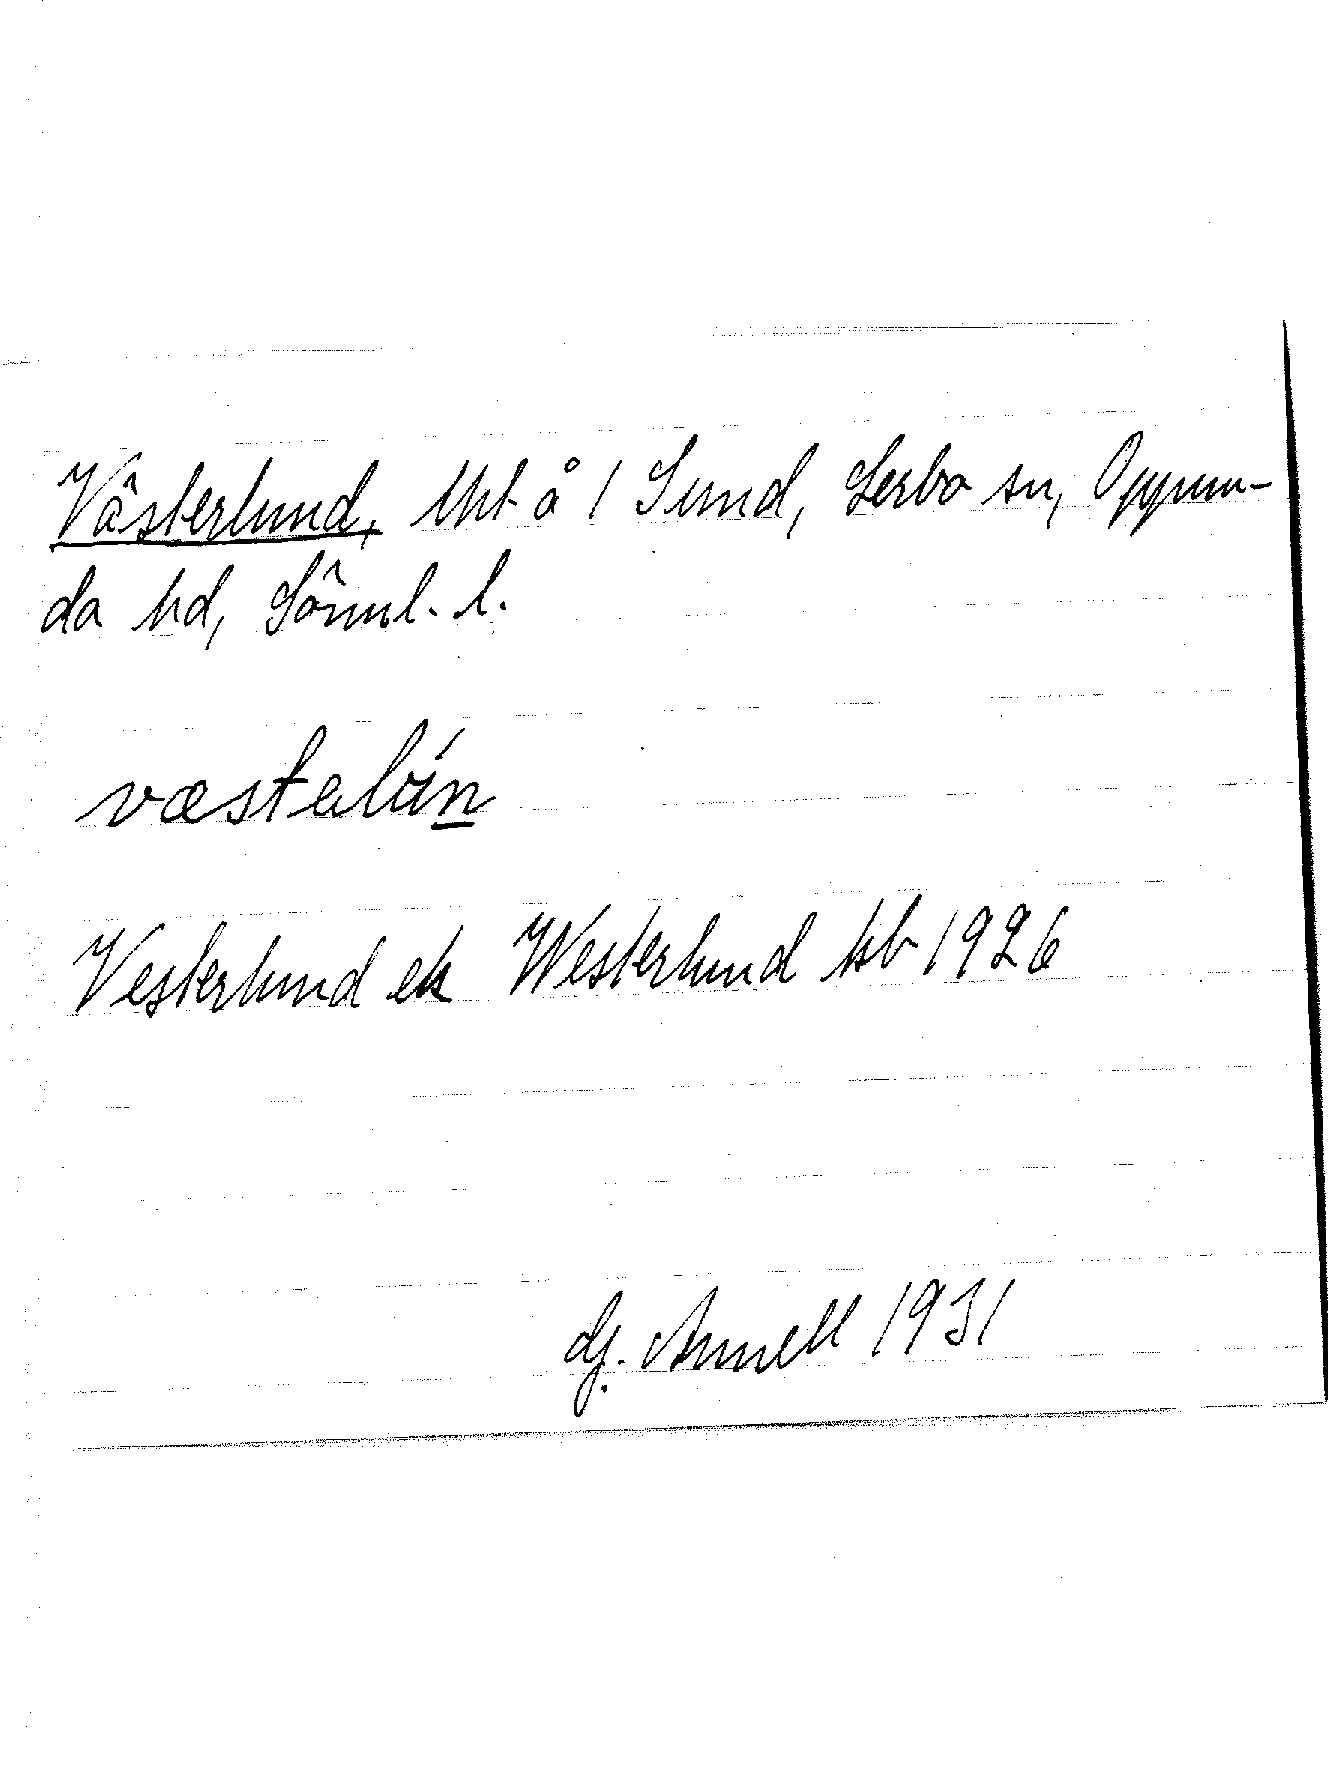 Västerlund, lht å / Sund, Lerbo sn, Oppun-
da hd, Söml. l.
væstaluń
Vesterlund ek Westerlund hb 1926
Gf. Annell 1931